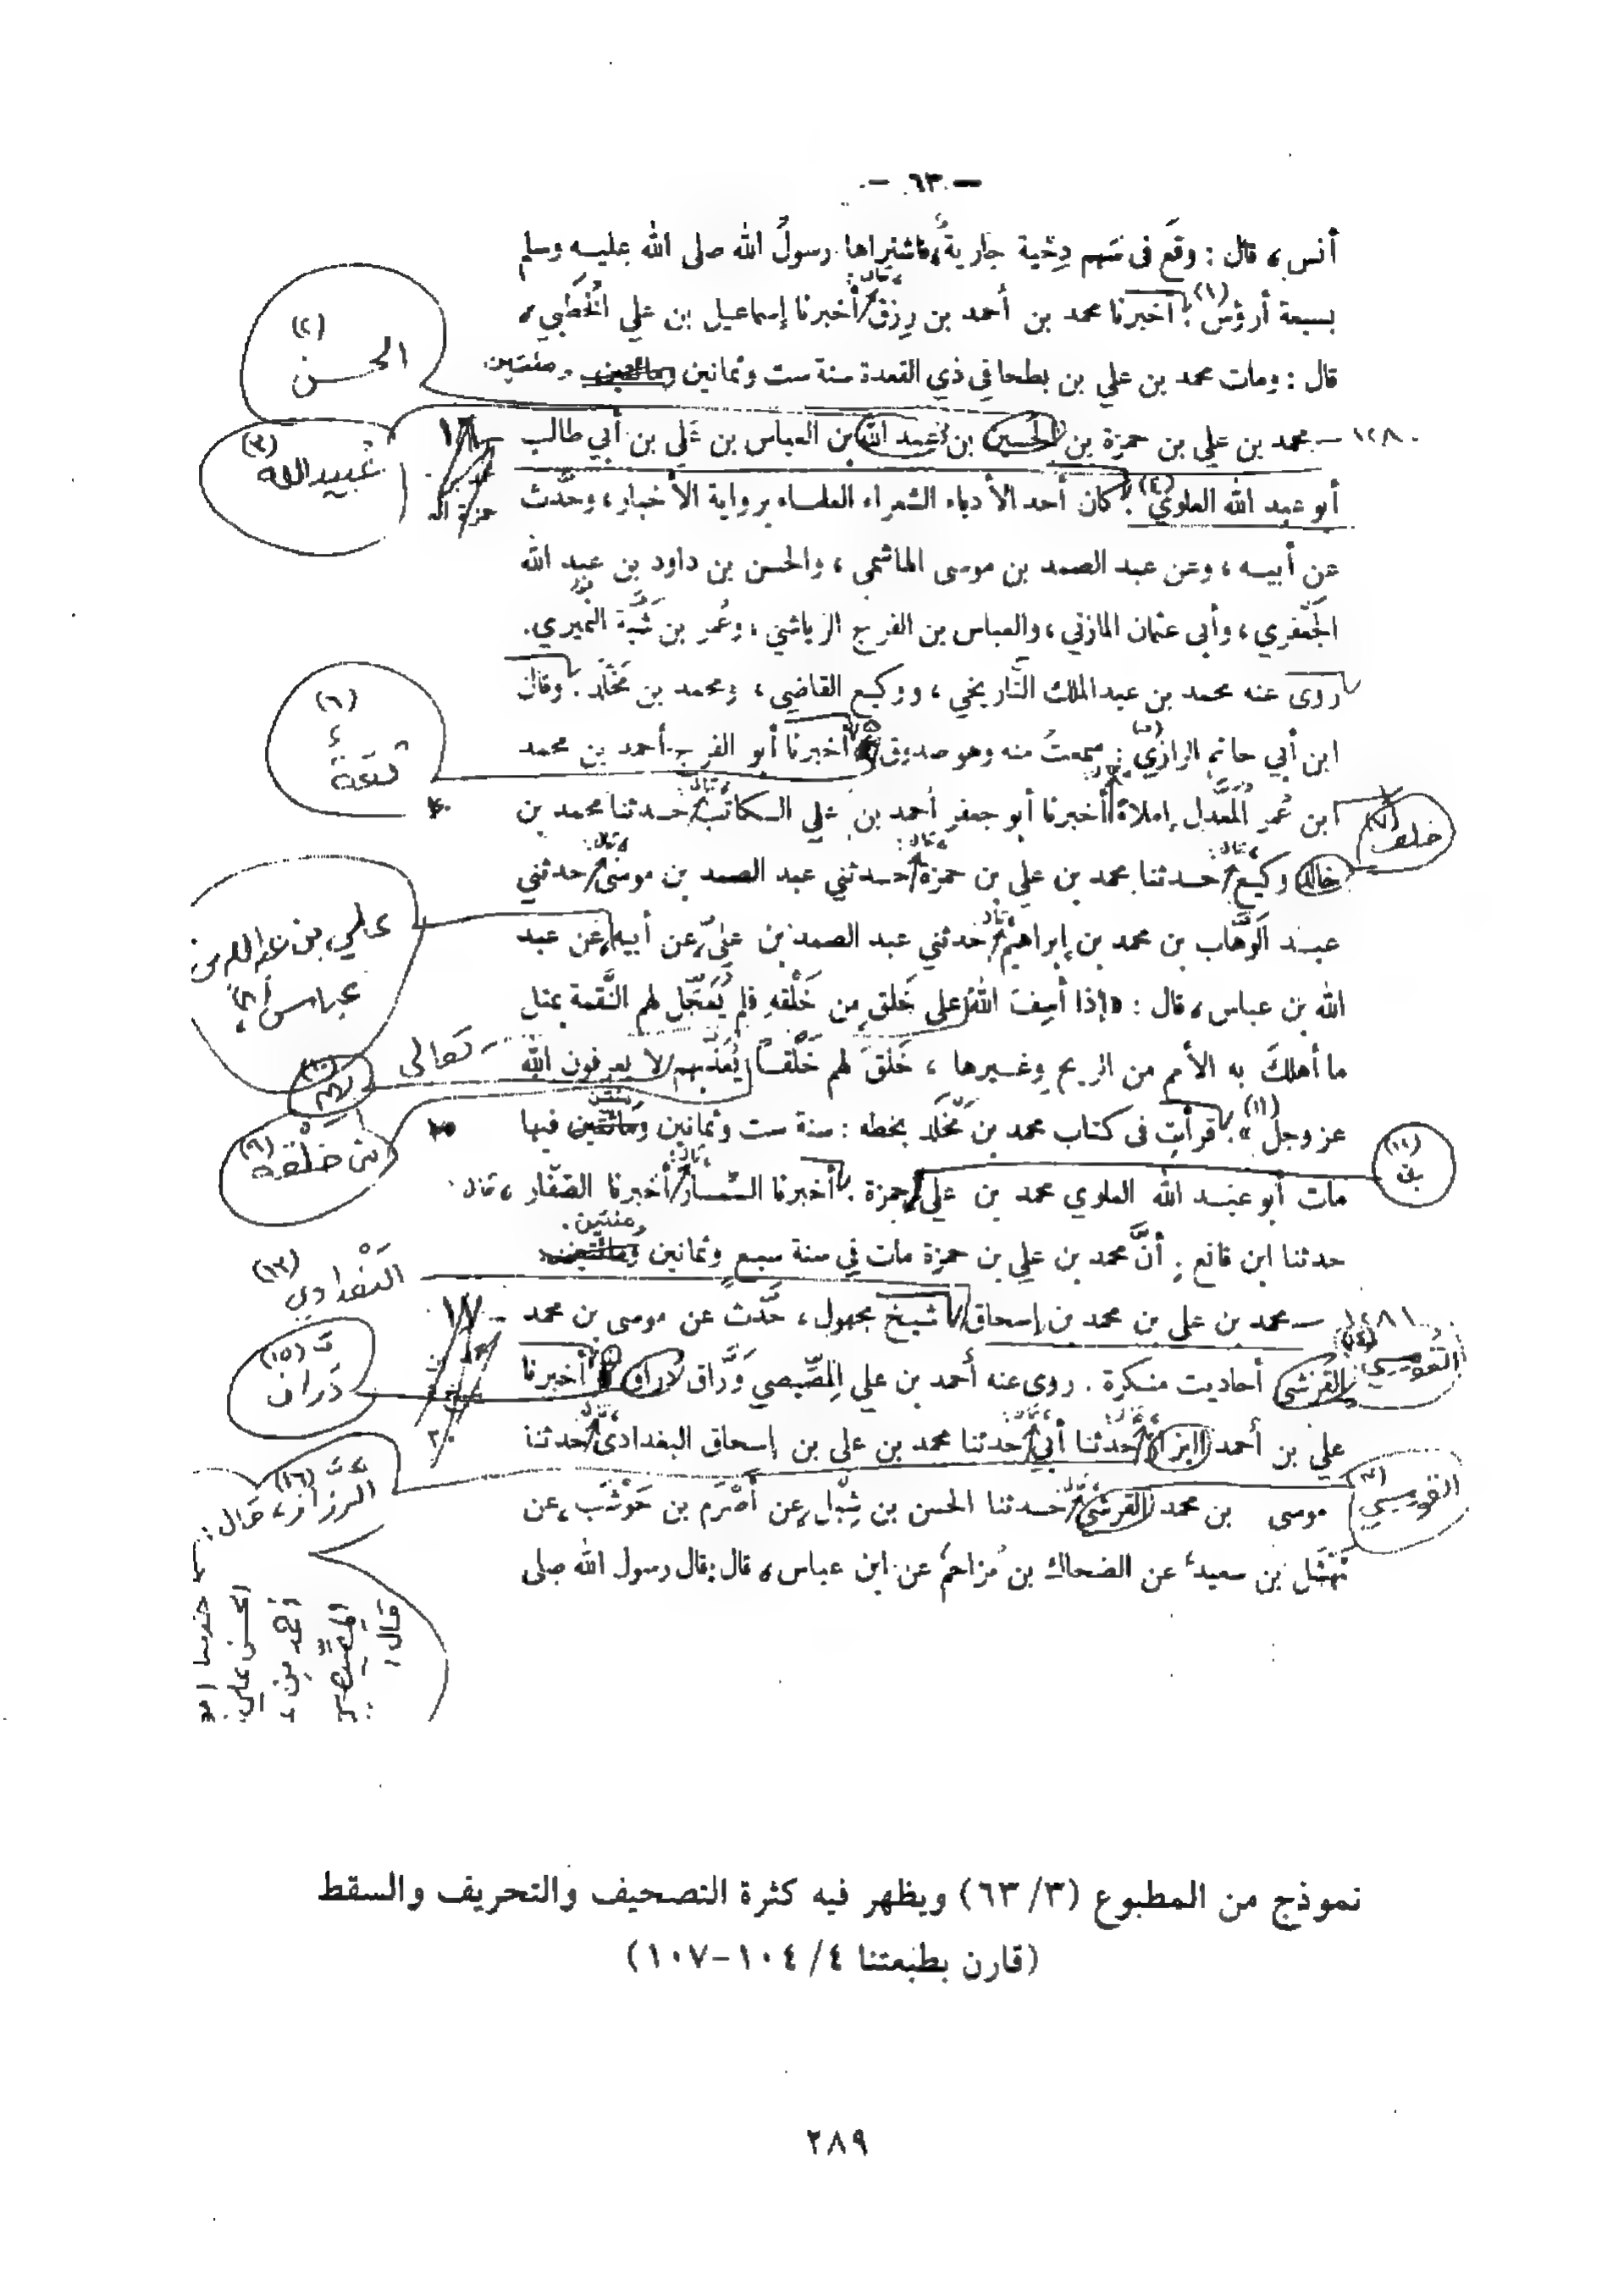 — ٦٣ —
أنس، قال: وقَع فى سَهم دِحْية جارية، فاشتراها رسولُ الله صلى الله عليه وسلم
، قال:
بسبعة أرؤس (١). أخبرنا محمد بن أحمد بن رِزْق أخبرنا إسماعيل بن علي الُخطَبي،
(٢) الحسن
قال: ومات محمد بن علي بن بطحا في ذي القعدة سنة ست وثمانين ومائتين ومئتين.
١٢٨٠ — محمد بن علي بن حمزة بن الحسين بن عبد الله بن العباس بن عَلي بن أبي طالب
(٣) عُبيدالله
أبو عبد الله العلوي (٤). كان أحد الأدباء الشعراء العلماء برواية الأخبار، وحَدَّث
عن أبيه، وعن عبد الصمد بن موسى الهاشمي، والحسن بن داود بن عبد الله
الَجعْفري، وأبي عثمان المازني، والعباس بن الفرج الرياشي، وعُمر بن شَبَّة النُّميري.
روى عنه محمد بن عبدالملك التَّاريخي، ووكيع القاضي، ومحمد بن مَخْلَد. وقال
(٦) ثقة
ابن أبي حاتم الرازي (٥): سمعتُ منه وهو صدوق أخبرنا أبو الفرج أحمد بن محمد
ابن عُمر الُمعَدَّل إملاءً أخبرنا أبو جعفر أحمد بن علي الكاتب، قال: حدثنا محمد بن
(٧) خلف
خالد وكيع، قال: حدثنا محمد بن علي بن حمزة، قال: حدثني عبد الصمد بن موسى، قال: حدثني
عبد الوَهَّاب بن محمد بن إبراهيم، قال: حدثني عبد الصمد بن عليّ، عن أبيه، عن عبد
الله بن عباس، قال: «إذا أَسِفَ اللهُ على خَلق من خَلْقهِ فلم يُعَجِّل لهم النَّقمة بمثل
تعالى
ما أهلكَ به الأمم من الريح وغيرها، خَلَقَ لهم خَلْقاً يُعَذِّبهم لا يعرفون الله
(٩) من خَلْقه
عز وجل» (١١). قرأت فى كتاب محمد بن مَخْلَد بخطه: سنة ست وثمانين ومائتين فيها
(١٢) بن
مات أبو عبد الله العلوي محمد بن علي حمزة. أخبرنا السِّمسار، قال: أخبرنا الصَّفّار، قال:
ومئتين.
حدثنا ابن قانع. أنَّ محمد بن علي بن حمزة مات في سنة سبع وثمانين ومائتين.
(١٣) البَغْدادي
١٢٨١ — محمد بن علي بن محمد بن إسحاق شيخ مجهول، حَدَّث عن موسى بن محمد
(١٤) القُومسي
القرشي أحاديث منكرة. روى عنه أحمد بن علي المِصِّيصي وَرَّاق دراق أخبرنا
(١٥) دَران
علي بن أحمد البزاز، قال: حدثنا أبي، قال: حدثنا محمد بن علي بن إسحاق البغدادى، قال: حدثنا
(١٦) الرزاز، قال:
القومسي
موسى بن محمد القرشي، قال: حدثنا الحسن بن شِبْل، عن أَصْرَم بن حَوْشَب، عن
نَهْشَل بن سعيد، عن الضحاك بن مُزاحم، عن ابن عباس، قال: قال رسول الله صلى
قال:
نموذج من المطبوع (٦٣/٣) ويظهر فيه كثرة التصحيف والتحريف والسقط
(قارن بطبعتنا ٤/ ١٠٤-١٠٧)
٢٨٩